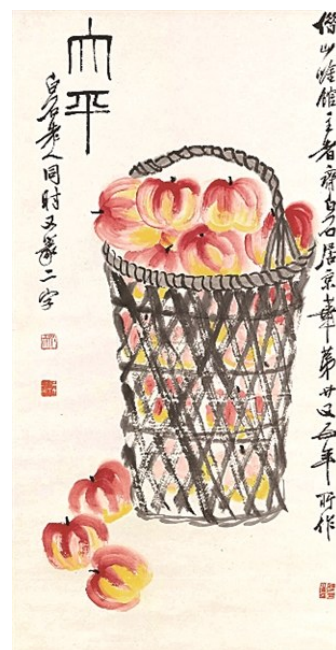 借山唫館主者齊白石居京華第廿又五年所作
太平
白石老人同時又篆二字